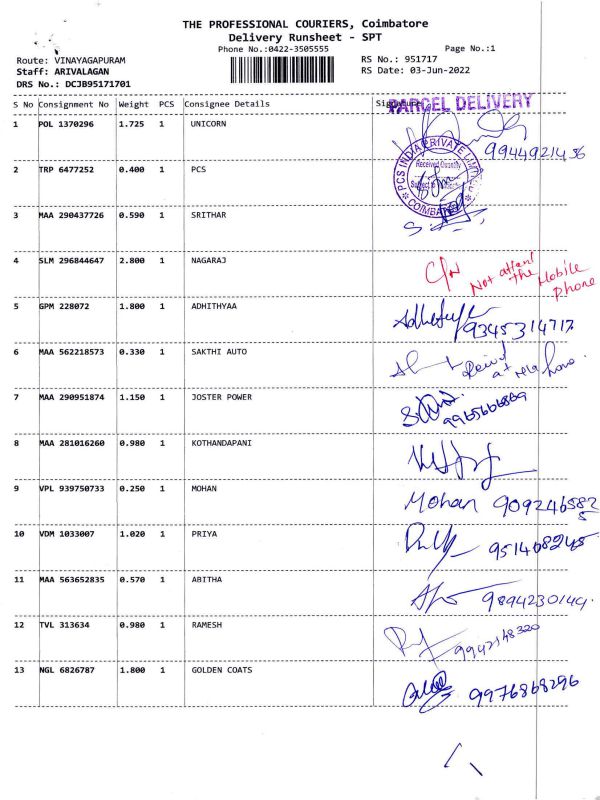 THE PROFESSIONAL COURIERS, Coimbatore
Delivery Runsheet - SPT
Phone No.:0422-3505555
Page No.:1
Route: VINAYAGAPURAM
RS No.: 951717
Staff: ARIVALAGAN
RS Date: 03-Jun-2022
DRS No.: DCJB95171701
S No Consignment No Weight PCS Consignee Details Signature
PARCEL DELIVERY
1 POL 1370296 1.725 1 UNICORN
9944921436
2 TRP 6477252 0.400 1 PCS
PCS INDIA PRIVATE LIMITED
Received Quantity
Subject to
COIMBATORE
3 MAA 290437726 0.590 1 SRITHAR
4 SLM 296844647 2.800 1 NAGARAJ
C/N Not attent the Mobile phone
5 GPM 228072 1.800 1 ADHITHYAA
9345314717
6 MAA 562218573 0.330 1 SAKTHI AUTO
7 MAA 290951874 1.150 1 JOSTER POWER
8 MAA 281016260 0.980 1 KOTHANDAPANI
9 VPL 939750733 0.250 1 MOHAN
Mohan 9092465825
10 VDM 1033007 1.020 1 PRIYA
11 MAA 563652835 0.570 1 ABITHA
9894230149.
12 TVL 313634 0.980 1 RAMESH
13 NGL 6826787 1.800 1 GOLDEN COATS
9976868296